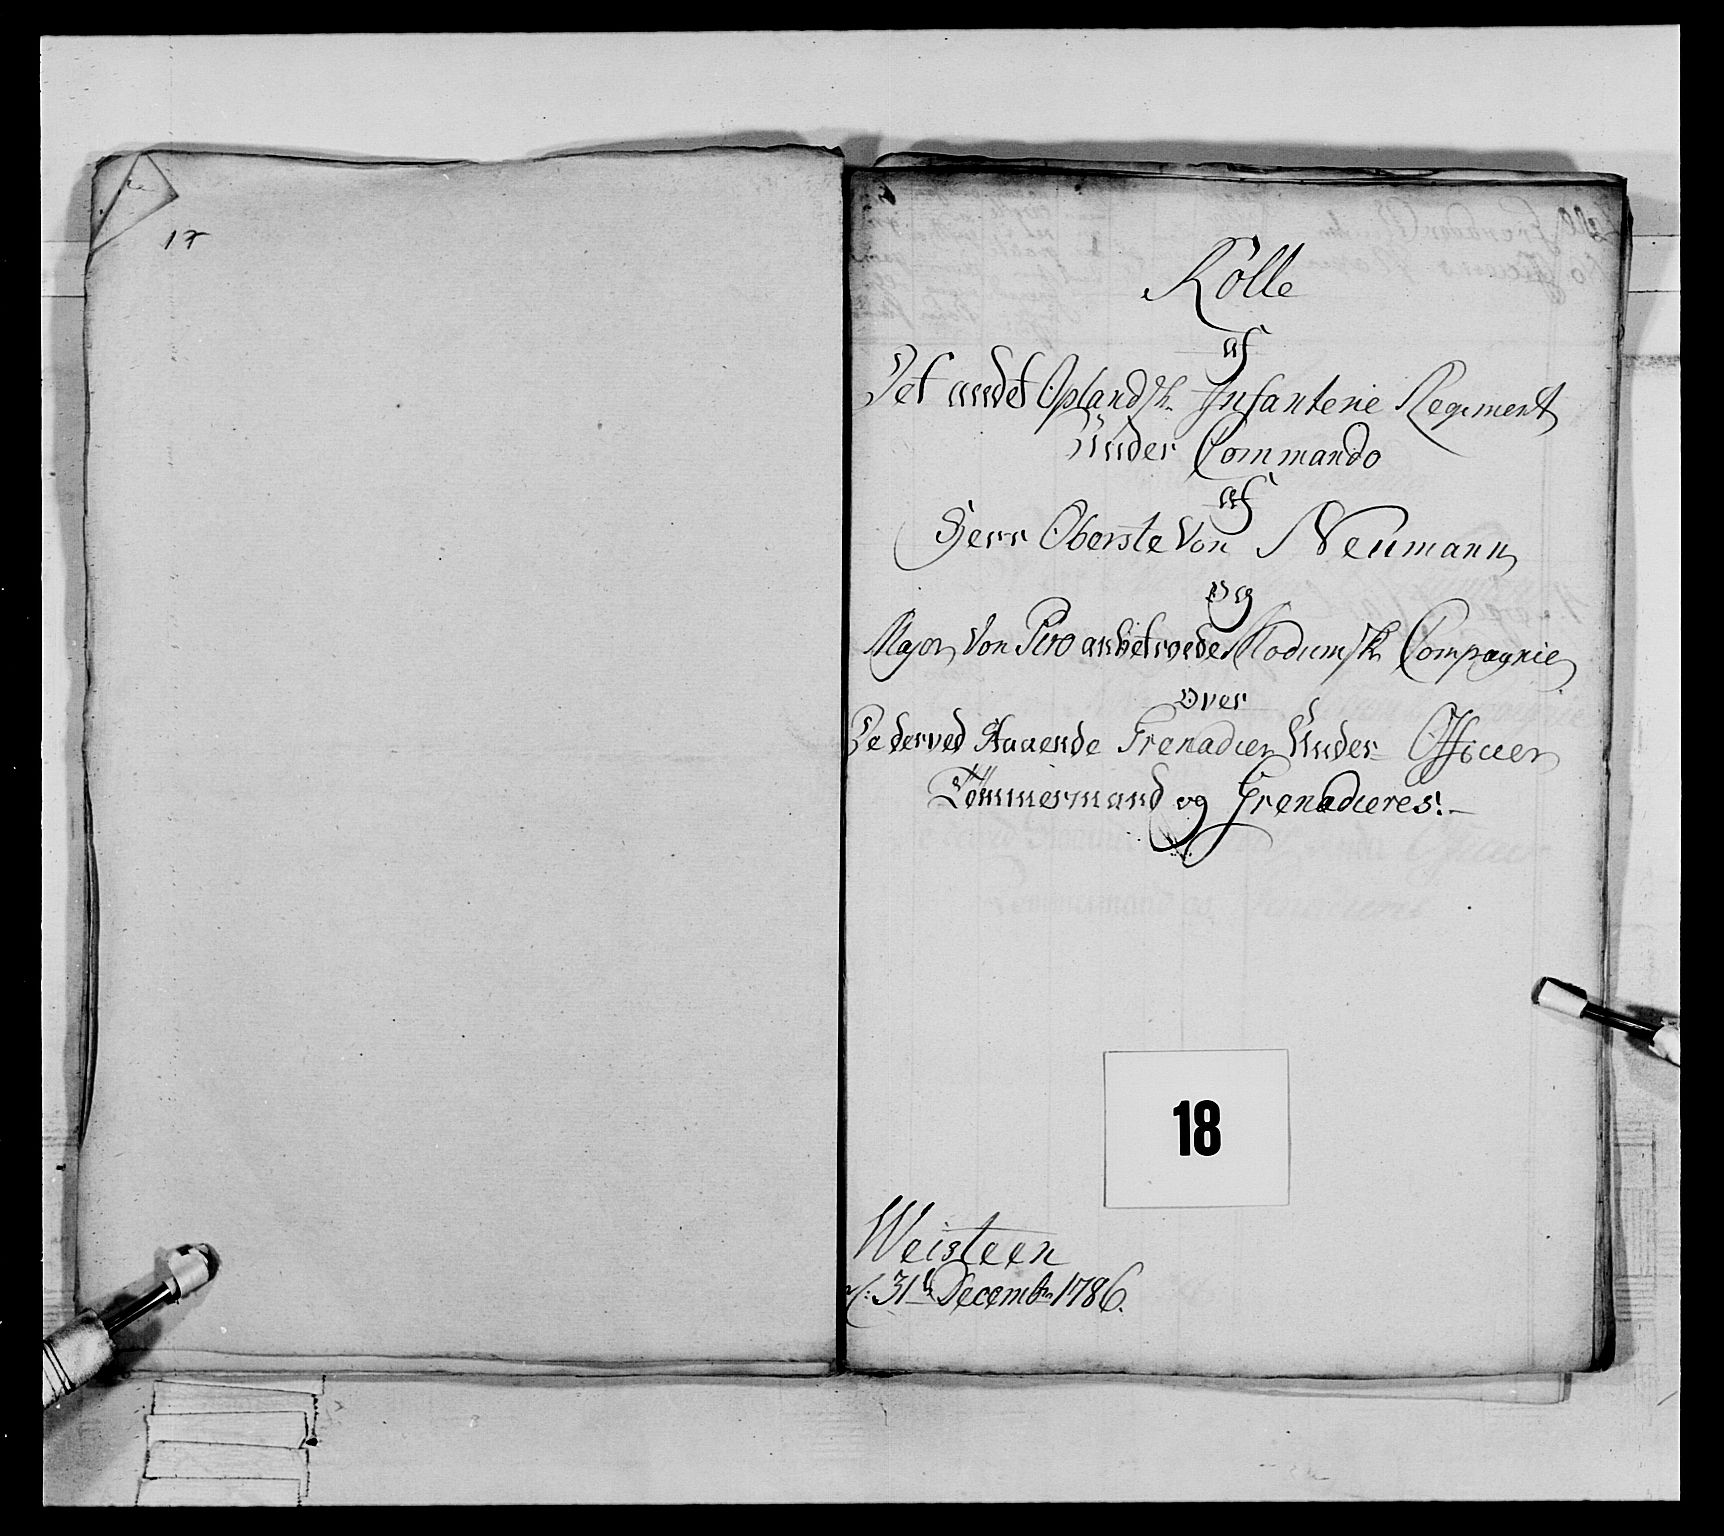 17
Rolle
af
Det andet Oplandsk. Infanterie Regiment
Under Commando
af
Herr Oberste Von Neumann
og
Major Von Pero anbetroede Modumsk Compagnie
over
De derved staaende Grenadier Under Officier
Tømmermand og Grenadieres:
18
Weisteen
d: 31te Decembr 1786.